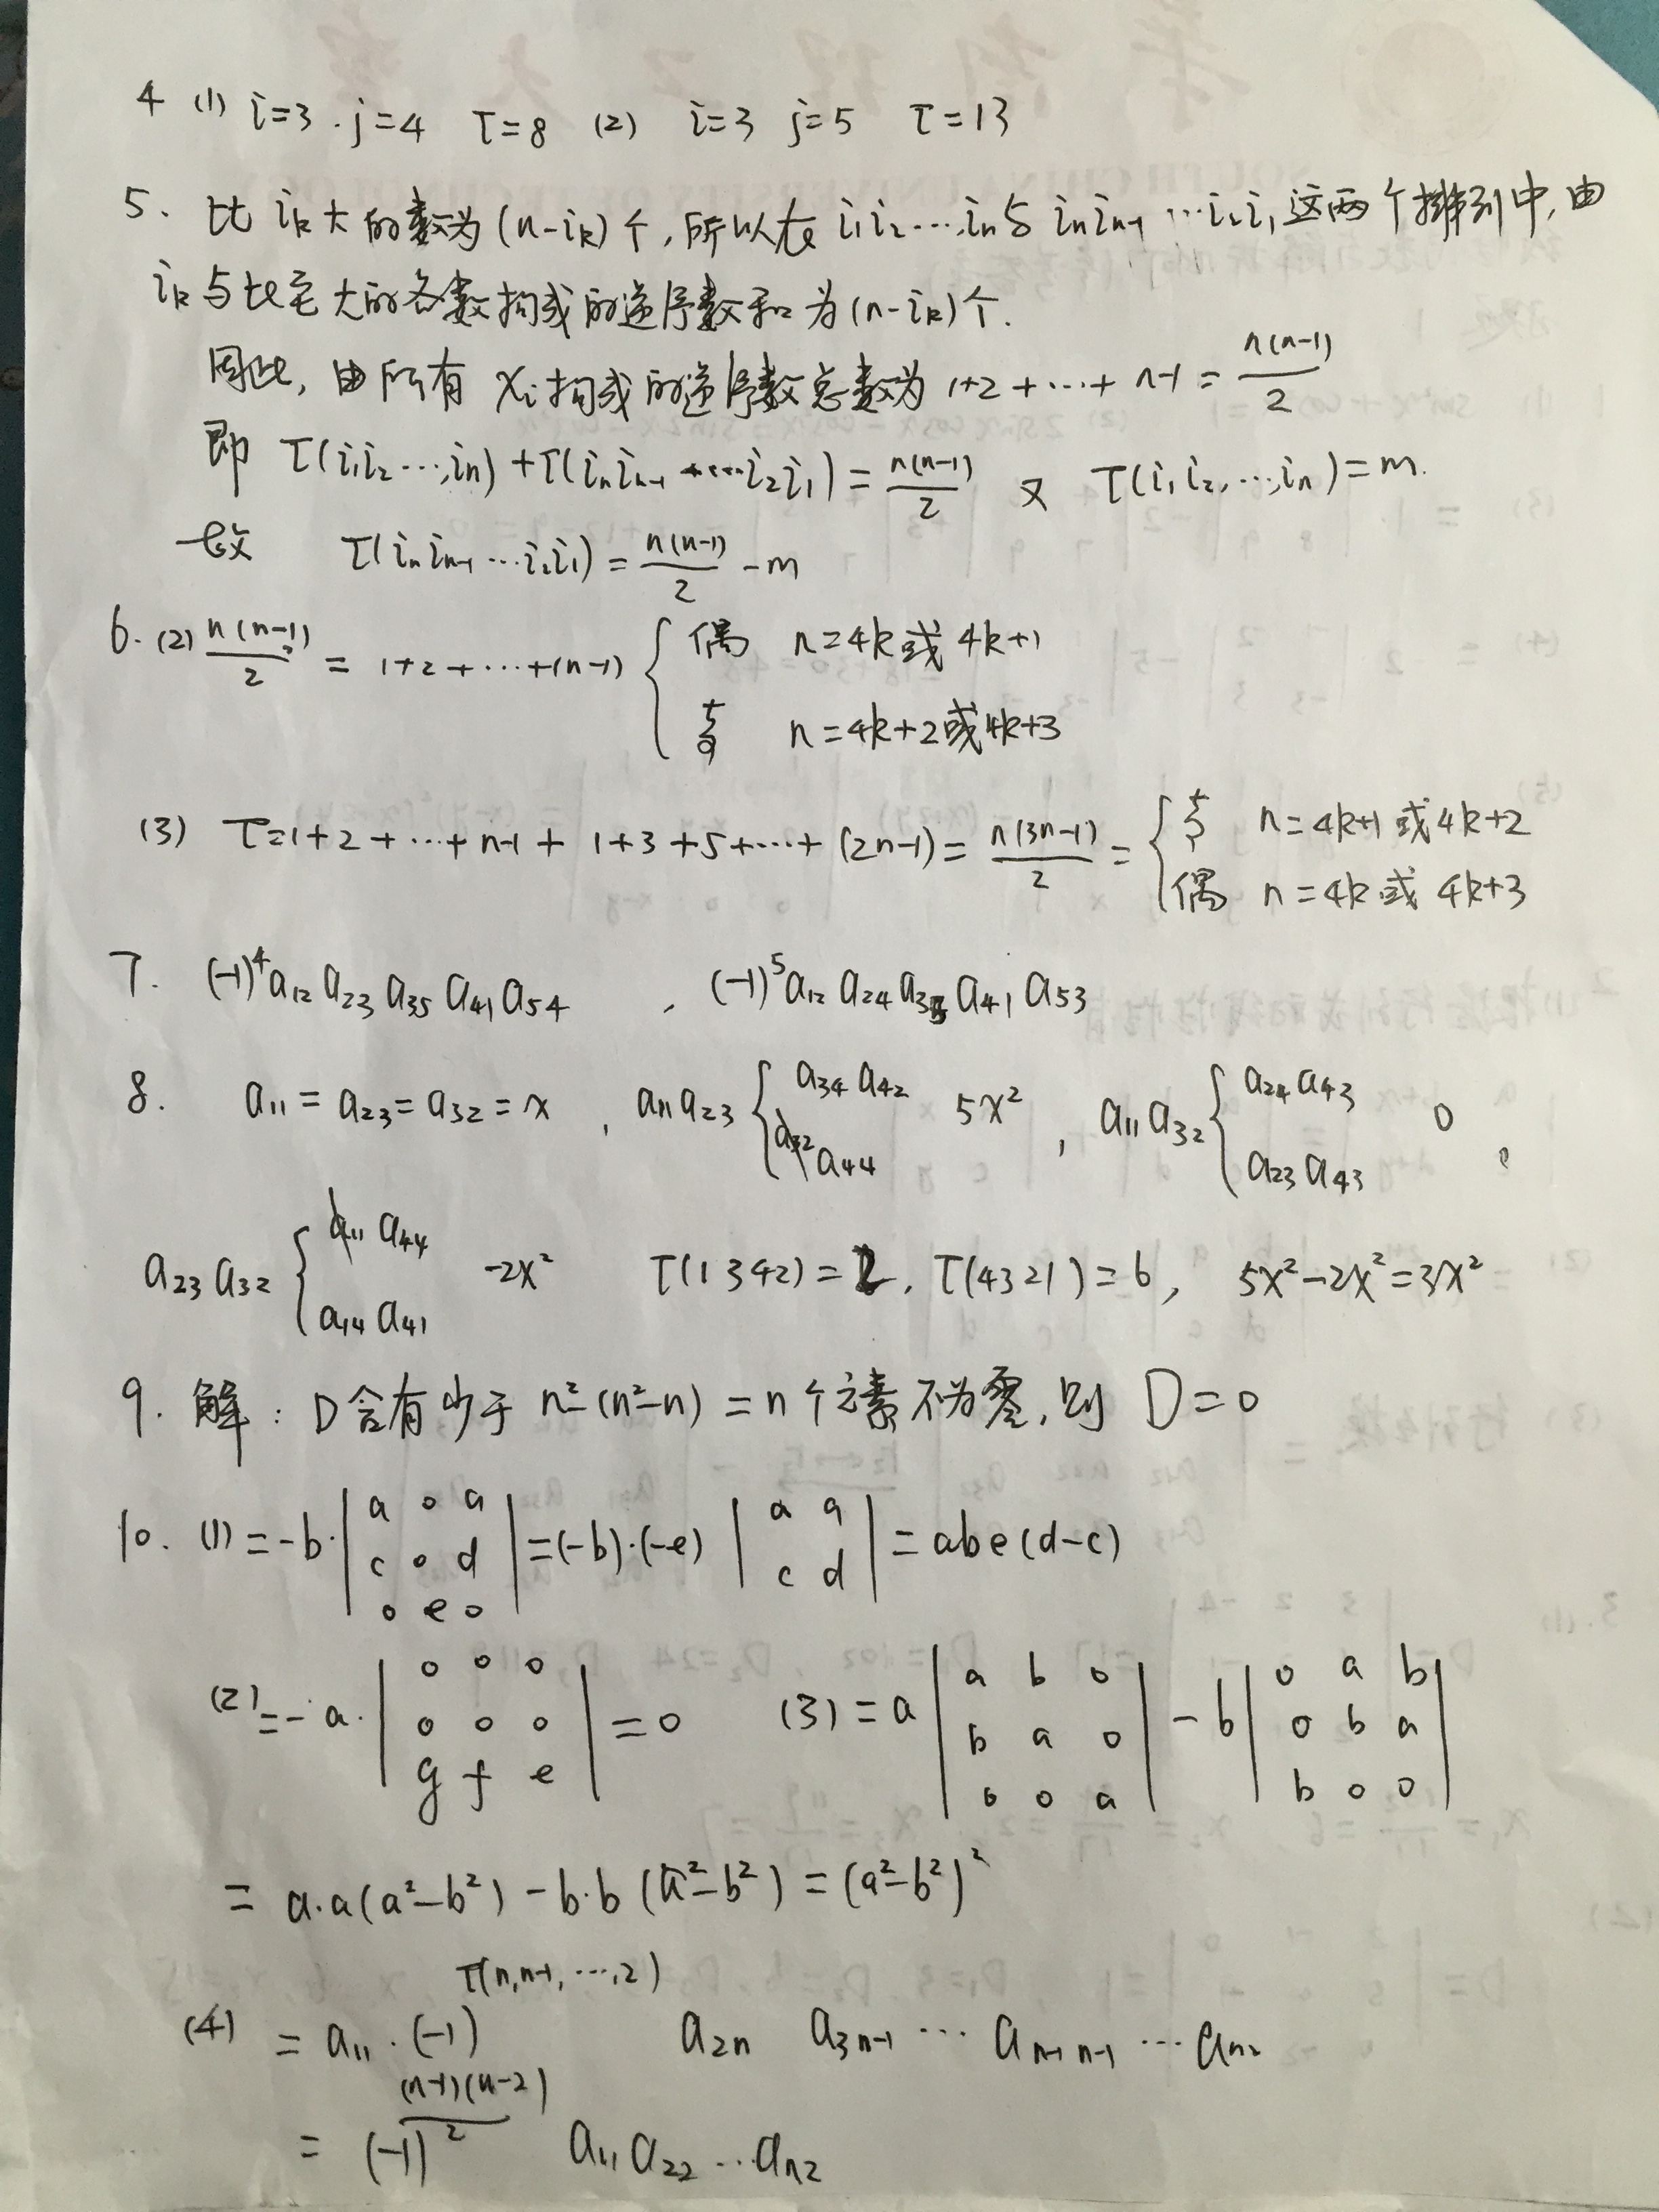 4 (1) i=3 . j=4 τ=8 (2) i=3 j=5 τ=13
5. 比 iₖ 大的数为 (n-iₖ) 个, 所以在 i₁i₂…,iₙ 与 iₙiₙ₋₁ …i₂i₁ 这两个排列中, 由
iₖ 与比它大的各数构成的逆序数和为 (n-iₖ) 个.
因此, 由所有 xᵢ 构成的逆序数总数为 1+2+…+ n-1 = n(n-1)/2
即 τ(i₁i₂…,iₙ)+τ(iₙiₙ₋₁ …i₂i₁) = n(n-1)/2 又 τ(i₁i₂,…,iₙ)=m.
故 τ(iₙiₙ₋₁…i₂i₁) = n(n-1)/2 -m
6. (2) n(n-1)/2 = 1+2+…+(n-1) { 偶 n=4k或 4k+1
奇 n=4k+2或4k+3
(3) τ=1+2+…+ n-1 + 1+3+5+…+ (2n-1) = n(3n-1)/2 = { 奇 n=4k+1 或 4k+2
偶 n=4k或 4k+3
7. (-1)⁴a₁₂a₂₃a₃₅a₄₁a₅₄ , (-1)⁵a₁₂a₂₄a₃₅a₄₁a₅₃
8. a₁₁=a₂₃=a₃₂=x , a₁₁a₂₃ { a₃₄a₄₂ 5x² , a₁₁a₃₂ { a₂₄a₄₃ 0 ,
a₃₂a₄₄ a₂₃a₄₃
a₂₃a₃₂ { a₁₁a₄₄ -2x² τ(1342)=2, τ(4321)=6, 5x²-2x²=3x²
a₁₄a₄₁
9. 解: D含有少于 n²-(n²-n)=n个元素不为零, 则 D=0
10. (1) =-b· | a 0 a | =(-b)·(-e) | a a | =abe(d-c)
c 0 d c d
0 e 0
(2) =-a· | 0 0 0 | =0 (3) =a | a b 0 | -b | 0 a b |
0 0 0 b a 0 0 b a
g f e 0 0 a b 0 0
= a·a(a²-b²)-b·b(a²-b²)=(a²-b²)²
τ(n,n-1,…,2)
(4) = a₁₁·(-1) a₂ₙ a₃ₙ₋₁ … aₙ₋₁ ₙ₋₁ … aₙ₂
(n-1)(n-2)
= (-1) 2 a₁₁a₂₂…aₙ₂